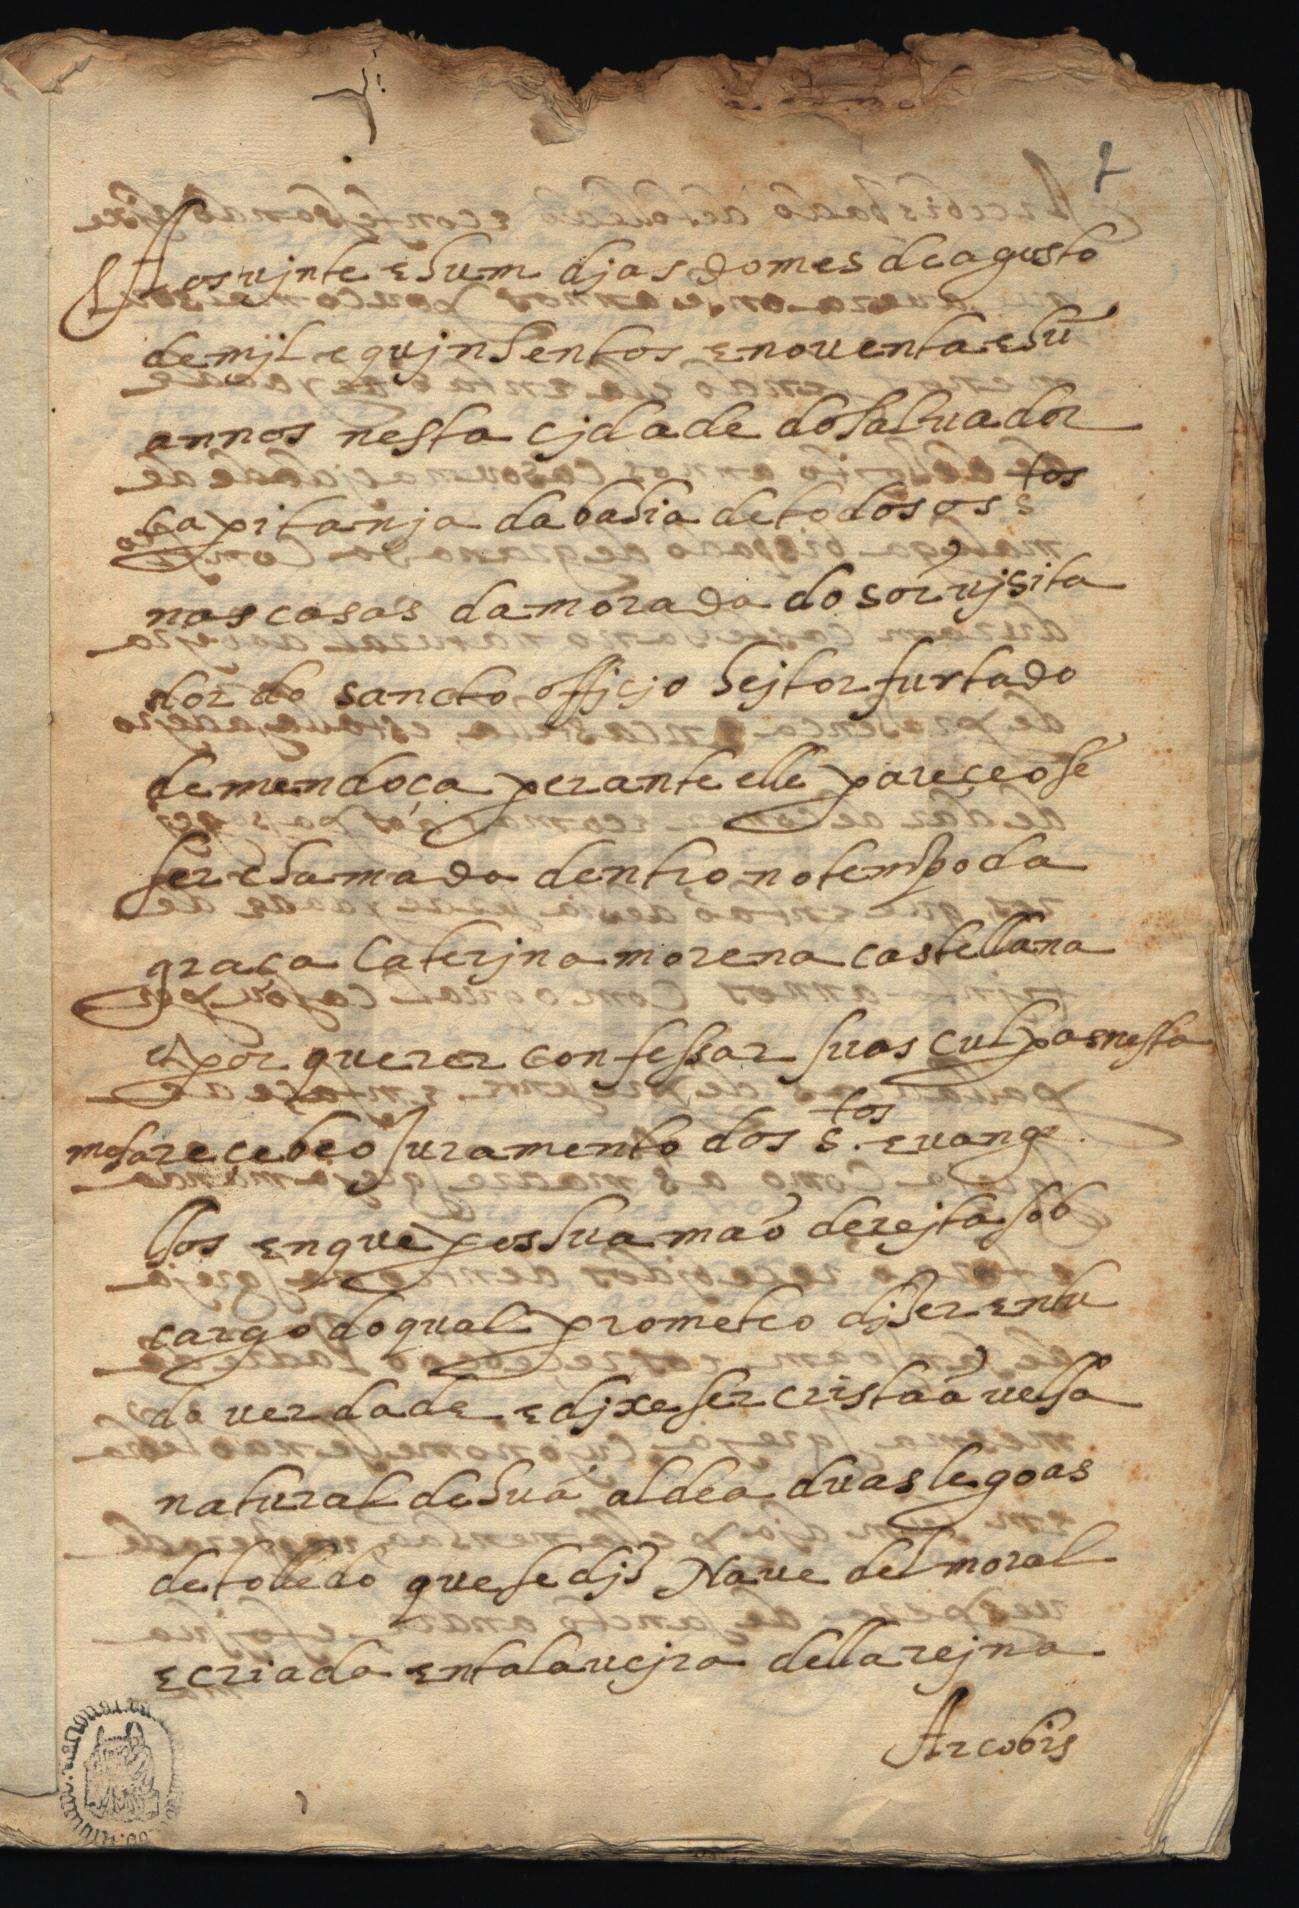 2
Aos vjnte e hum djas do mes de agosto
de mjl e quinhentos e noventa e hũ
annos nesta cjdade do salvador
capitanja da bahia de todos os s.tos
nas casas da morada do sõr vjsita
dor do sancto officjo heitor furtado
de mendoça perante elle pareceo sẽ
ser chamada dentro no tempo da
graça Caterjna morena castellana
e por querer confessar suas culpas nesta
mesa recebeo Juramento dos s.tos evange
lhos en que pos sua maõ dereita sob
cargo do qual prometeo djzer en tu
do verdade e djxe ser cristaã velha
natural de huã aldea duas legoas
de toledo que se djs Nave del moral
e criada en talaveira della rejna
Arcobis